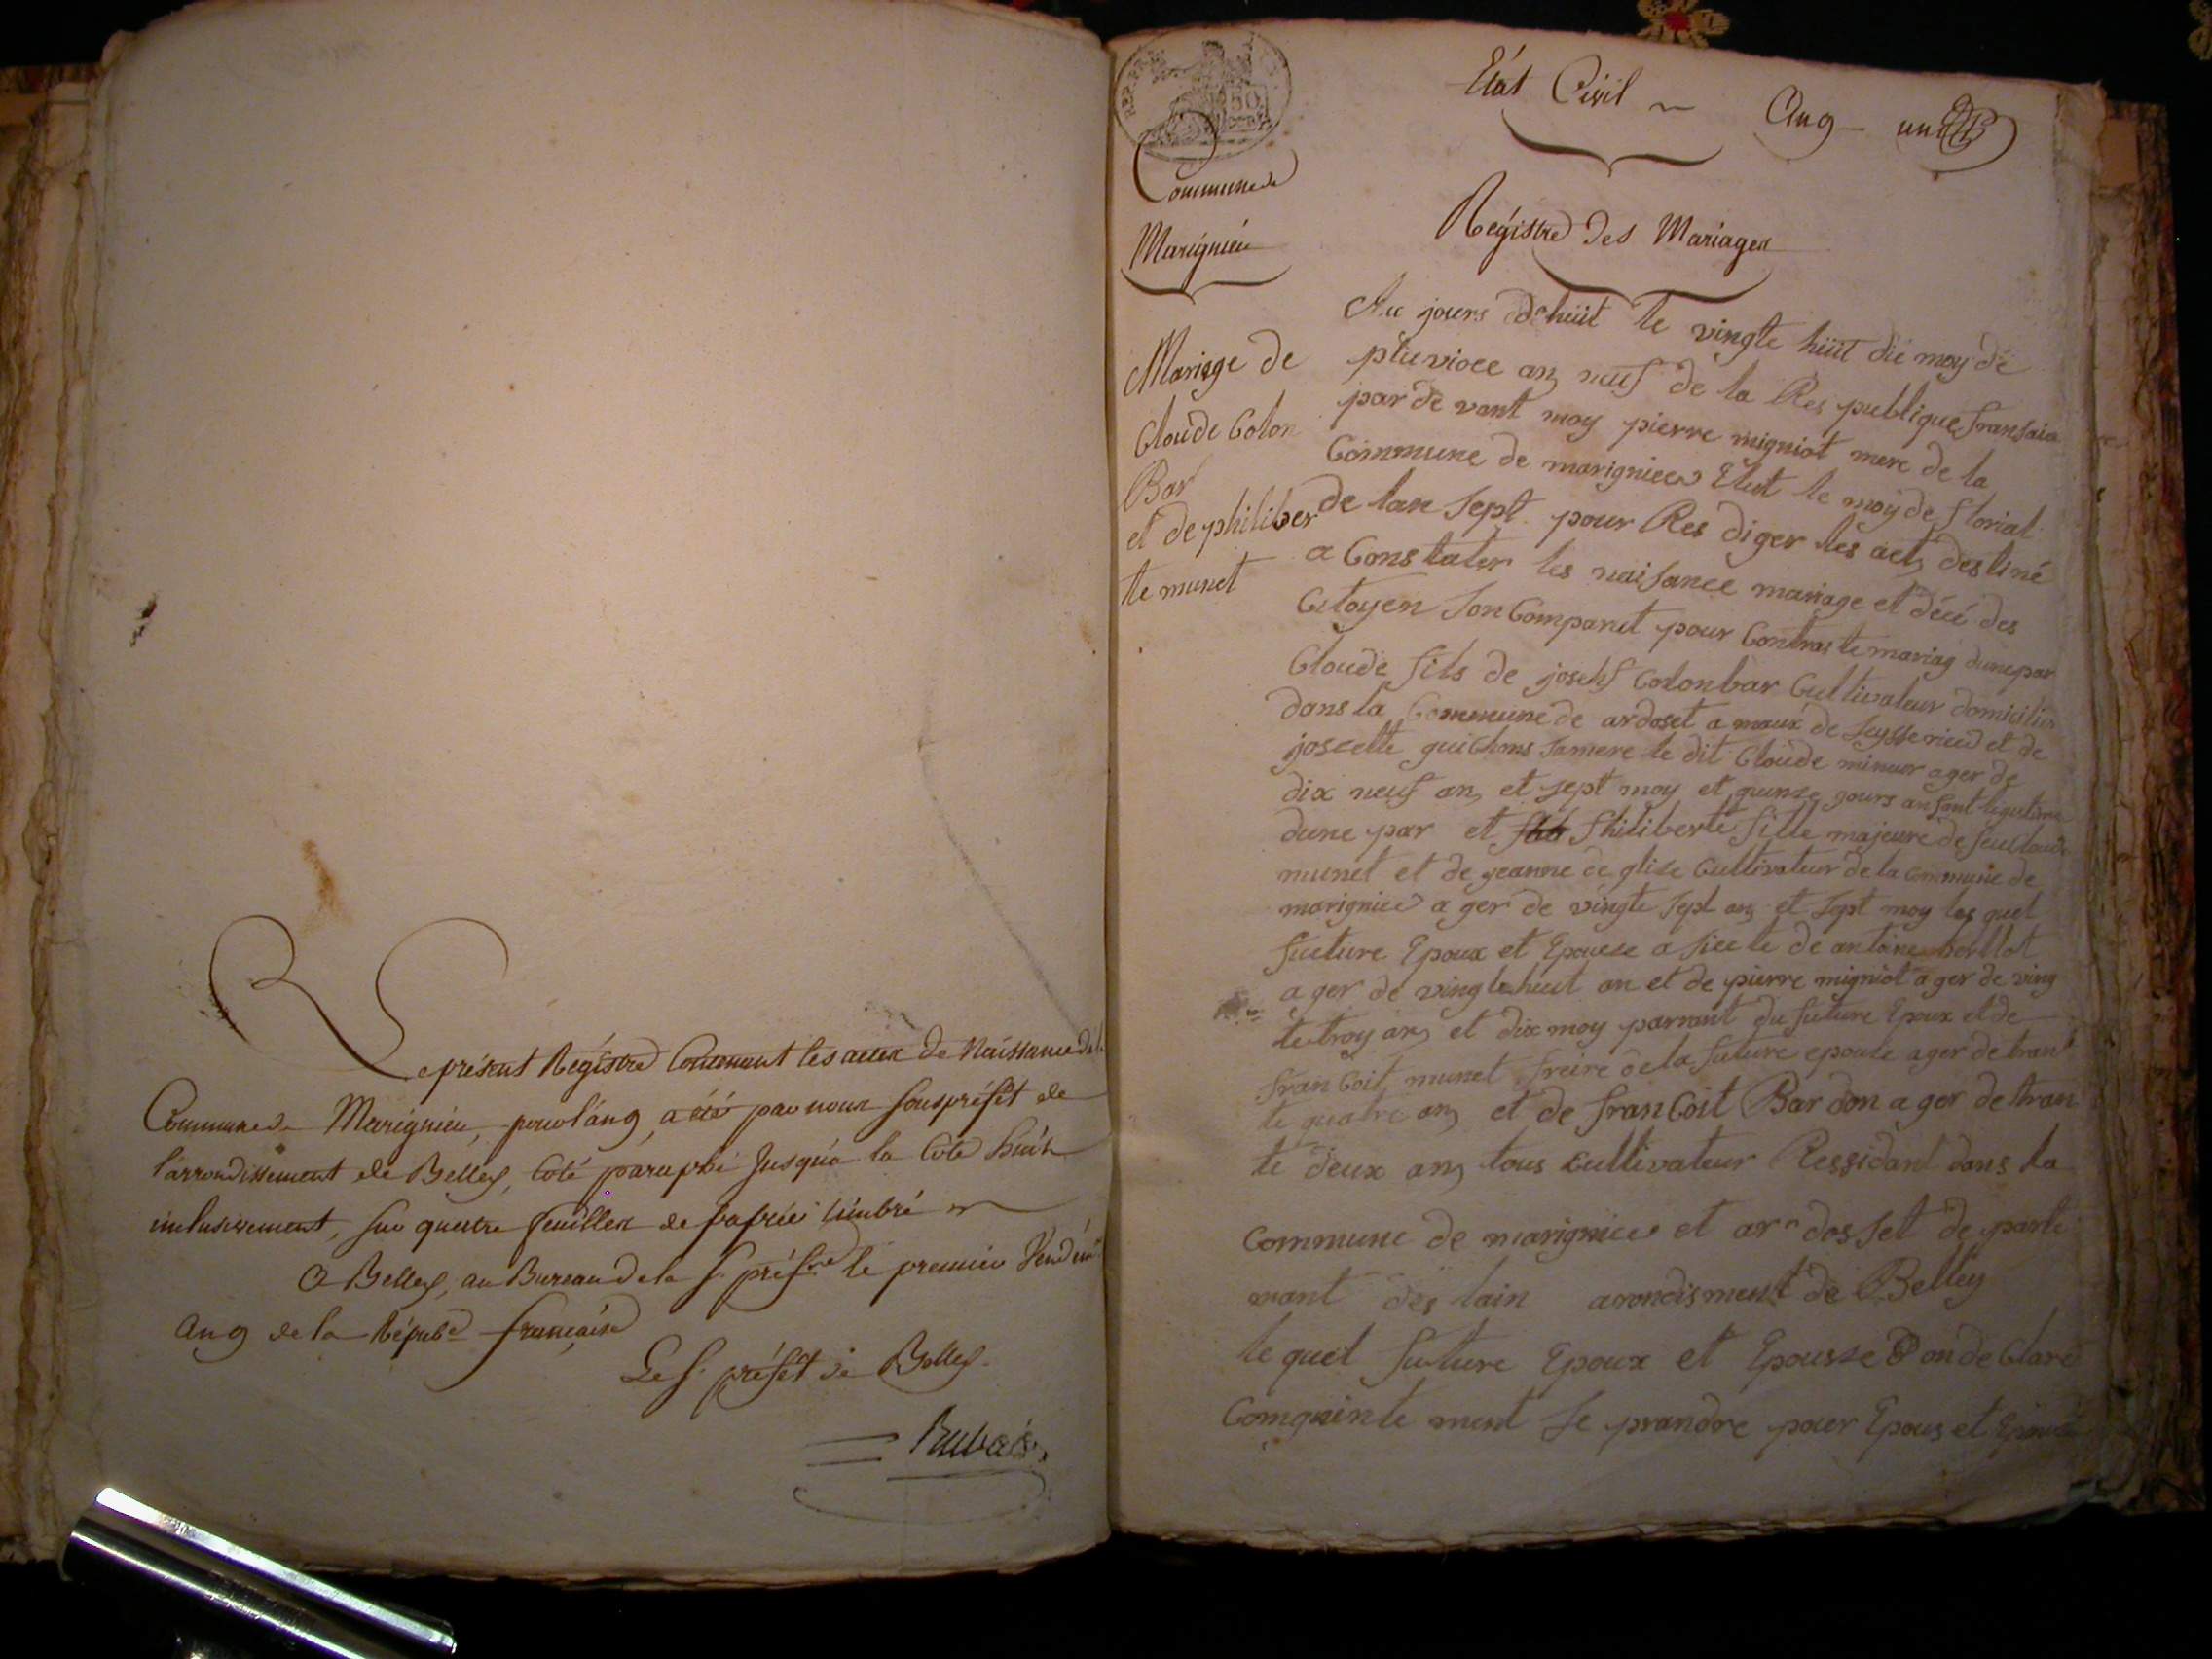 Le présent Régistre Contenant les actes de Naissance de la
Commune de Marignieu, pour l'an 9, a été par nous souspréfet de
l'arrondissement de Belley, Coté paraphé Jusqu'à la Cote huit
inclusivement, sur quatre feuilles de papier timbré
A Belley, au Bureau de la S. préfre le premier Vendemre
an 9 de la Répube française
Le S. préfet de Belley.
REP. FRA.
50
État Civil
An 9 - un
Commune de
Marignieu
Régistre des Mariages
Mariage de
Claude Colon
Bar
et de philiber
te munet
Au jours dehuit le vingte huit du moy de
pluvioce an neuf de la Res publique fransaice
par de vant moy pierre migniot mere de la
Commune de marignieu Elut le moy de florial
de lan sept pour Res diger les act destiné
a Constater les naisance mariage et décé des
Citoyen son Comparut pour Contracte mariag dune par
Claude fils de josehf Colonbar Cultivateur domicilier
dans la Commune de ardoset a maux de Seysserieu et de
joscelte guichons samere le dit Claude mineur ager de
dix neuf an et sept moy et quinse jours ansant legitime
dune par et philiberte fille majeure de feu Claude
munet et de jeanne de glise Cultivateur de la Commune de
marignieu a ger de vingte sept an et sept moy les quel
future Epoux et Epouse a sicte de antoine
a ger de vingtehuit an et de pierre migniot a ger de ving
te troy an et dix moy parrant du future Epoux et de
franCoit munet freire de la future epouse ager de tran
te quatre an et de franCoit Bardon a ger de tran
te deux an tous Cultivateur Ressidant dans la
Commune de marignieu et ar dosset de parte
mant des lain arondisment de Belley
le quel future Epoux et Epousse on de Clare
Comquinte ment se prandre pour Epous et Epouse